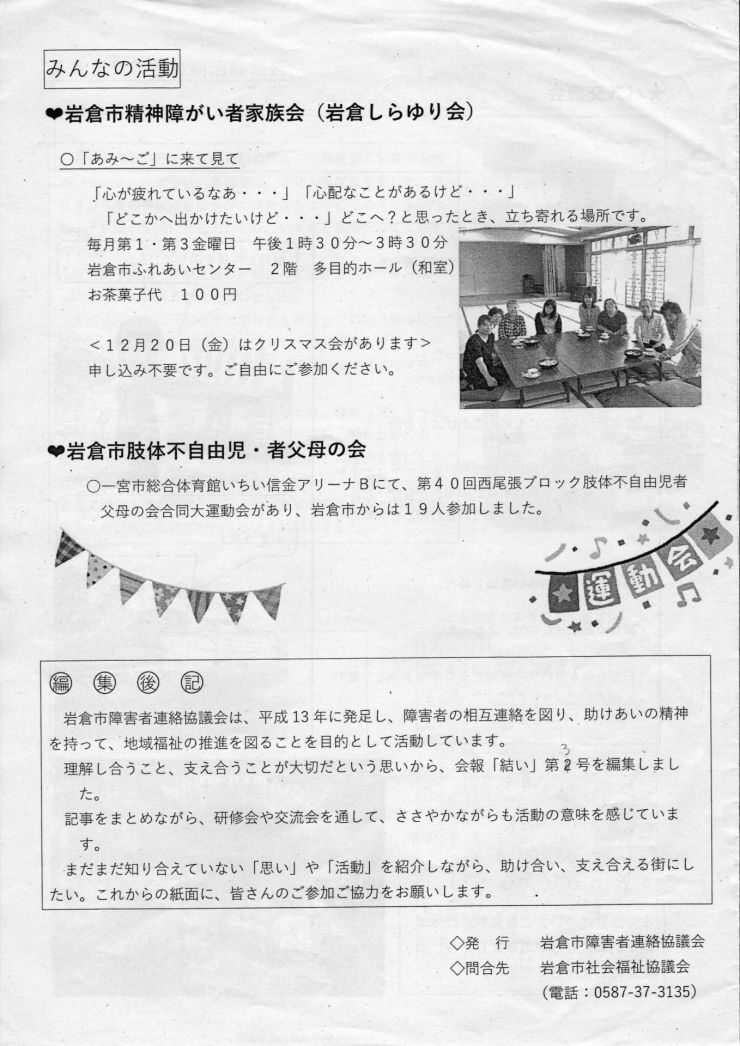 みんなの活動
❤岩倉市精神障がい者家族会（岩倉しらゆり会）
○「あみ～ご」に来て見て
「心が疲れているなあ・・・」「心配なことがあるけど・・・」
「どこかへ出かけたいけど・・・」どこへ？と思ったとき、立ち寄れる場所です。
毎月第１・第３金曜日　午後１時３０分～３時３０分
岩倉市ふれあいセンター　２階　多目的ホール（和室）
お茶菓子代　１００円
＜１２月２０日（金）はクリスマス会があります＞
申し込み不要です。ご自由にご参加ください。
❤岩倉市肢体不自由児・者父母の会
○一宮市総合体育館いちい信金アリーナＢにて、第４０回西尾張ブロック肢体不自由児者
父母の会合同大運動会があり、岩倉市からは１９人参加しました。
運動会
編集後記
岩倉市障害者連絡協議会は、平成13年に発足し、障害者の相互連絡を図り、助けあいの精神
を持って、地域福祉の推進を図ることを目的として活動しています。
理解し合うこと、支え合うことが大切だという思いから、会報「結い」第3号を編集しまし
た。
記事をまとめながら、研修会や交流会を通して、ささやかながらも活動の意味を感じていま
す。
まだまだ知り合えていない「思い」や「活動」を紹介しながら、助け合い、支え合える街にし
たい。これからの紙面に、皆さんのご参加ご協力をお願いします。
◇発　行　　岩倉市障害者連絡協議会
◇問合先　　岩倉市社会福祉協議会
（電話：0587-37-3135）